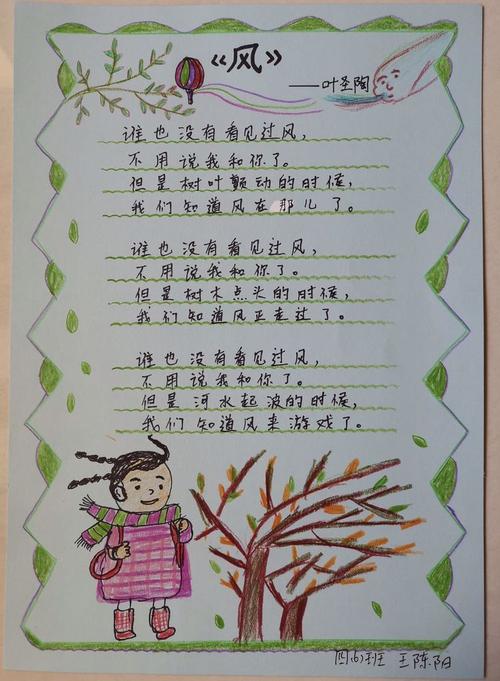 《风》
——叶圣陶
谁也没有看见过风，
不用说我和你了。
但是树叶颤动的时候，
我们知道风在那儿了。
谁也没有看见过风，
不用说我和你了。
但是树木点头的时候，
我们知道风正走过了。
谁也没有看见过风，
不用说我和你了。
但是河水起波的时候，
我们知道风来游戏了。
四(6)班 王陈阳